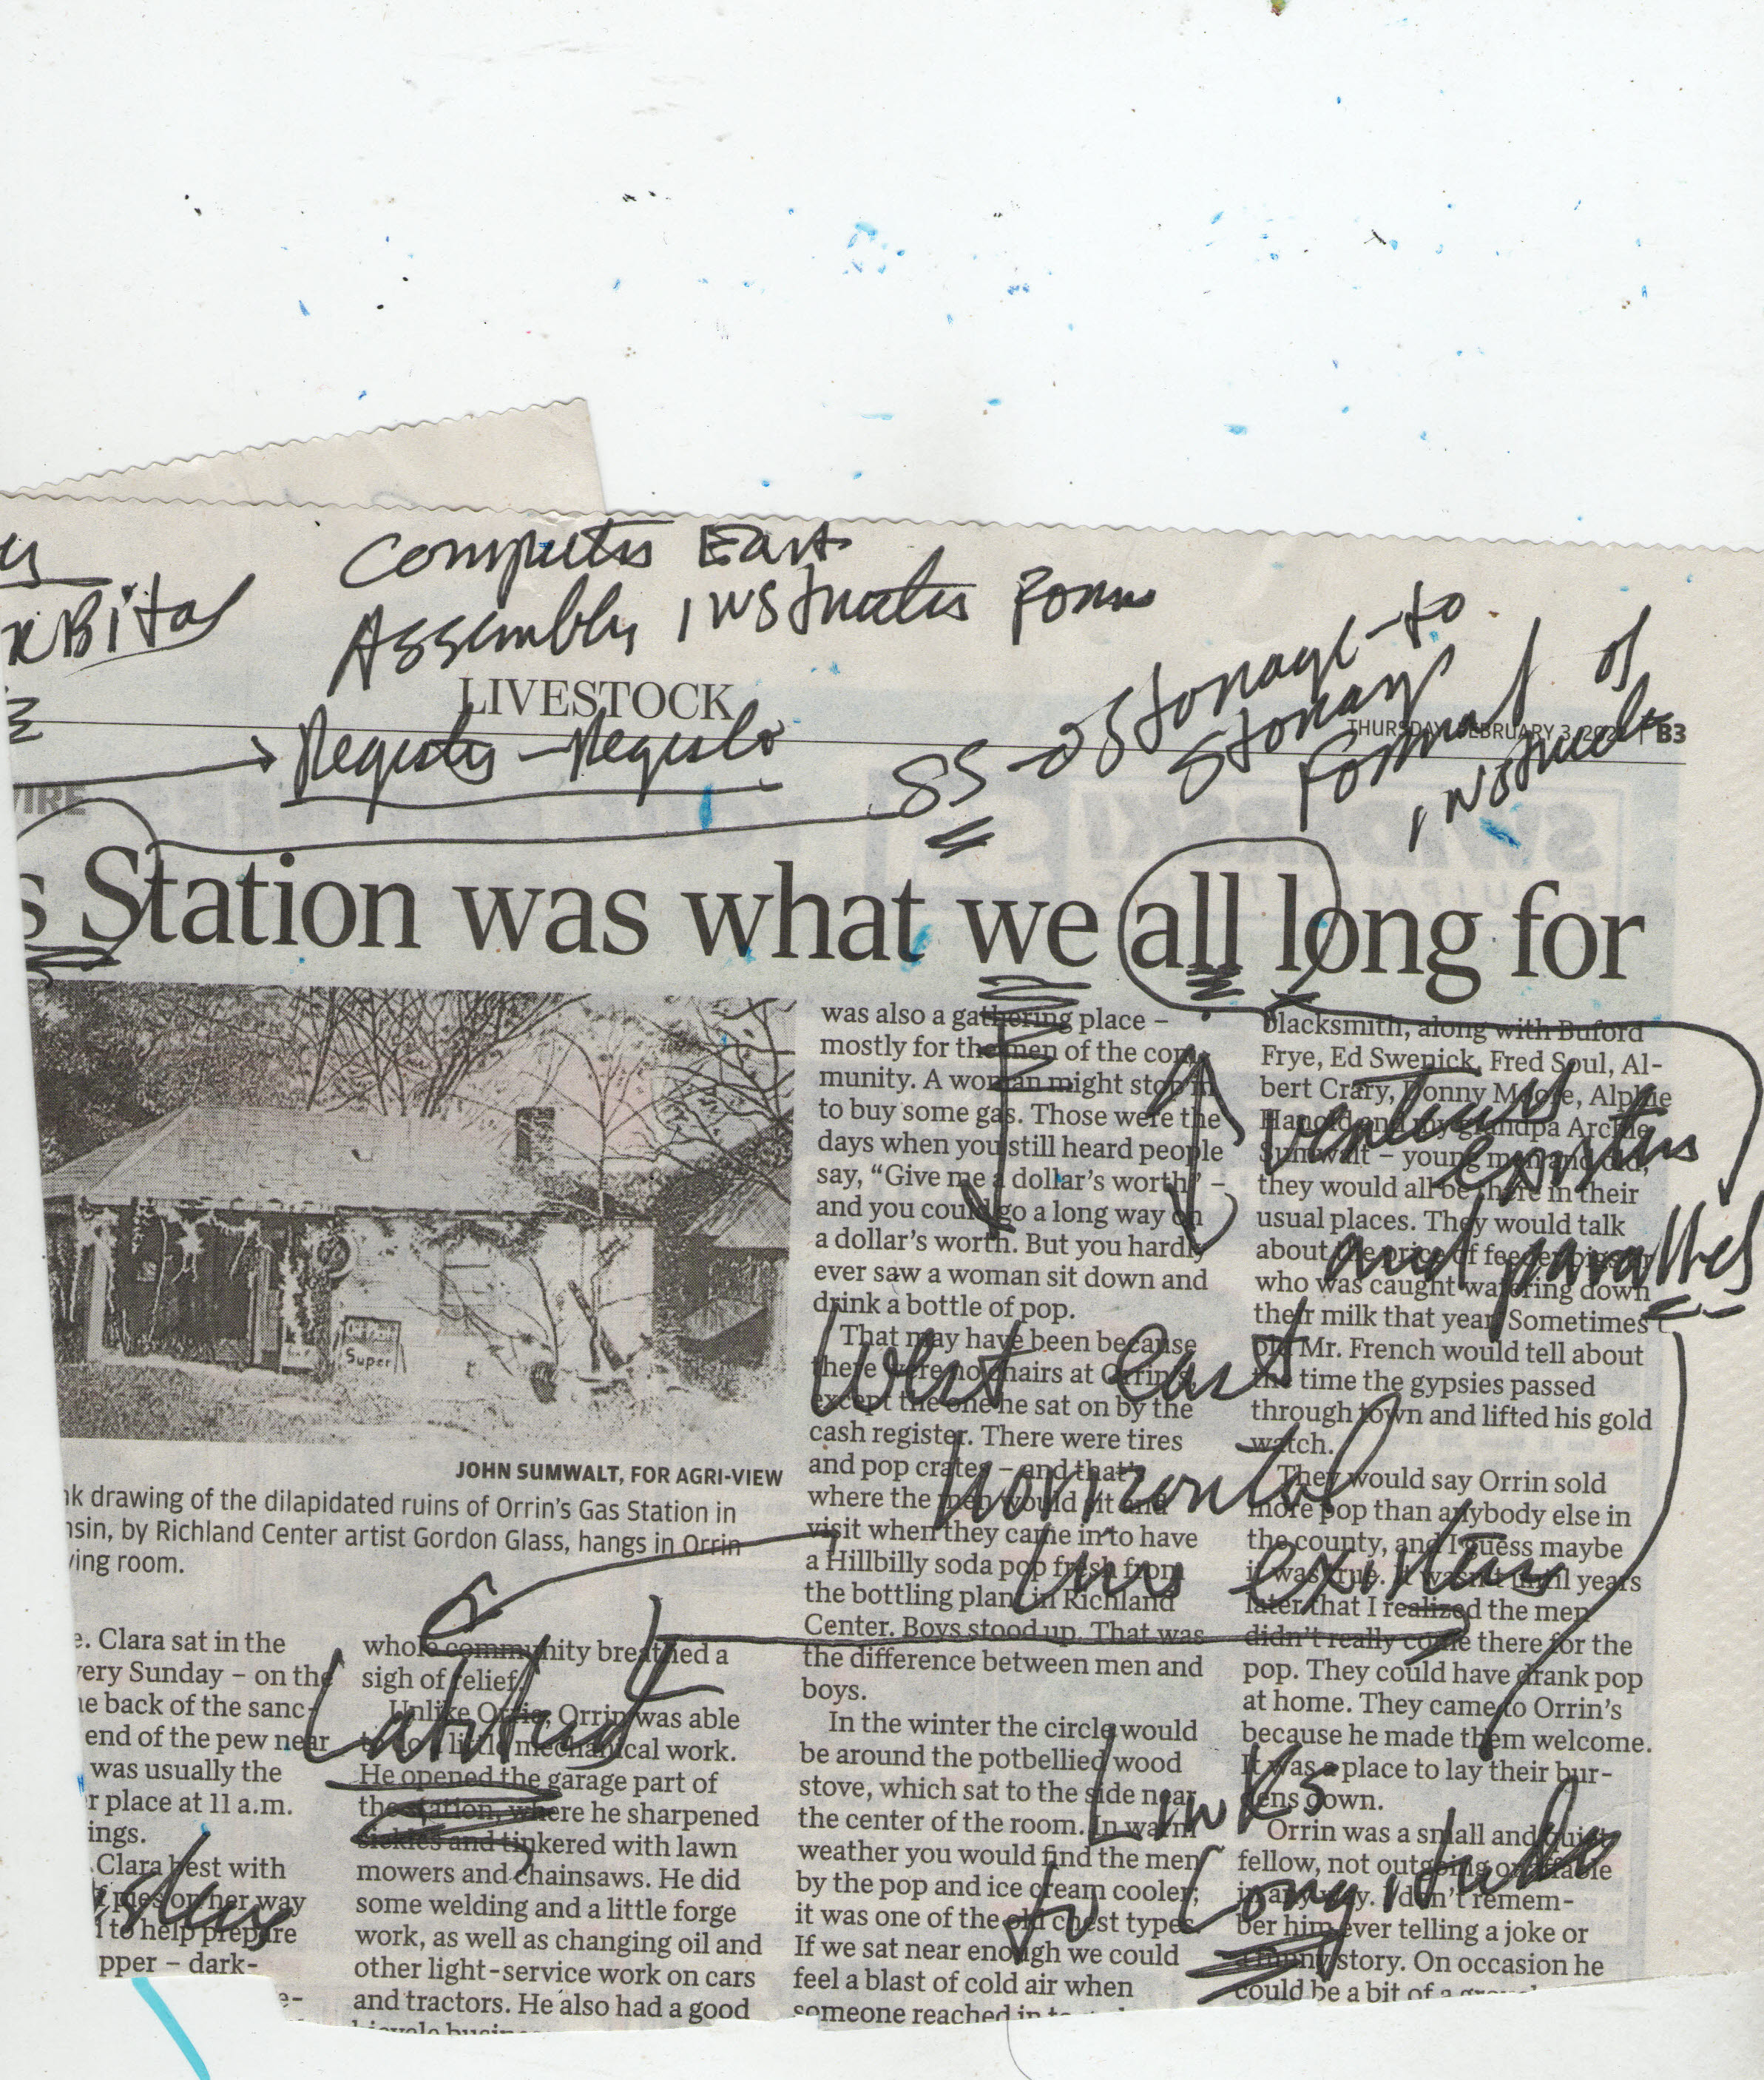 Assembly
LIVESTOCK
THURSDAY, FEBRUARY 3, | B3
SS - Storage-to
Storage
Format of
s Station was what we all long for
JOHN SUMWALT, FOR AGRI-VIEW
nk drawing of the dilapidated ruins of Orrin's Gas Station in
nsin, by Richland Center artist Gordon Glass, hangs in Orrin
ving room.
Super
e. Clara sat in the
very Sunday – on the
he back of the sanc-
end of the pew near
was usually the
r place at 11 a.m.
ings.
Clara best with
pies on her way
l to help prepare
pper – dark-
e-
whole community breathed a
sigh of relief.
Unlike Orrie, Orrin was able
to do a little mechanical work.
He opened the garage part of
the station, where he sharpened
sickles and tinkered with lawn
mowers and chainsaws. He did
some welding and a little forge
work, as well as changing oil and
other light-service work on cars
and tractors. He also had a good
bicycle
was also a gathering place –
mostly for the men of the com-
munity. A woman might stop in
to buy some gas. Those were the
days when you still heard people
say, "Give me a dollar's worth" –
and you could go a long way on
a dollar's worth. But you hardly
ever saw a woman sit down and
drink a bottle of pop.
That may have been because
there were no chairs at Orrin's,
except the one he sat on by the
cash register. There were tires
and pop crates – and that's
where the men would sit and
visit when they came in to have
a Hillbilly soda pop fresh from
the bottling plant in Richland
Center. Boys stood up. That was
the difference between men and
boys.
In the winter the circle would
be around the potbellied wood
stove, which sat to the side near
the center of the room. In warm
weather you would find the men
by the pop and ice cream cooler;
it was one of the old chest types.
If we sat near enough we could
feel a blast of cold air when
someone reached in to
blacksmith, along with Buford
Frye, Ed Swenick, Fred Soul, Al-
bert Crary, Donny Moore, Alphie
Hanold and my grandpa Archie
Sumwalt – young men and old,
they would all be there in their
usual places. They would talk
about the price of feeder pigs or
who was caught watering down
their milk that year. Sometimes
old Mr. French would tell about
the time the gypsies passed
through town and lifted his gold
watch.
They would say Orrin sold
more pop than anybody else in
the county, and I guess maybe
it was true. It wasn't until years
later that I realized the men
didn't really come there for the
pop. They could have drank pop
at home. They came to Orrin's
because he made them welcome.
It was a place to lay their bur-
dens down.
Orrin was a small and quiet
fellow, not outgoing or affable
in any way. I don't remem-
ber him ever telling a joke or
a funny story. On occasion he
could be a bit of a
and parallel
West East
horizontal
Links
to Longitude